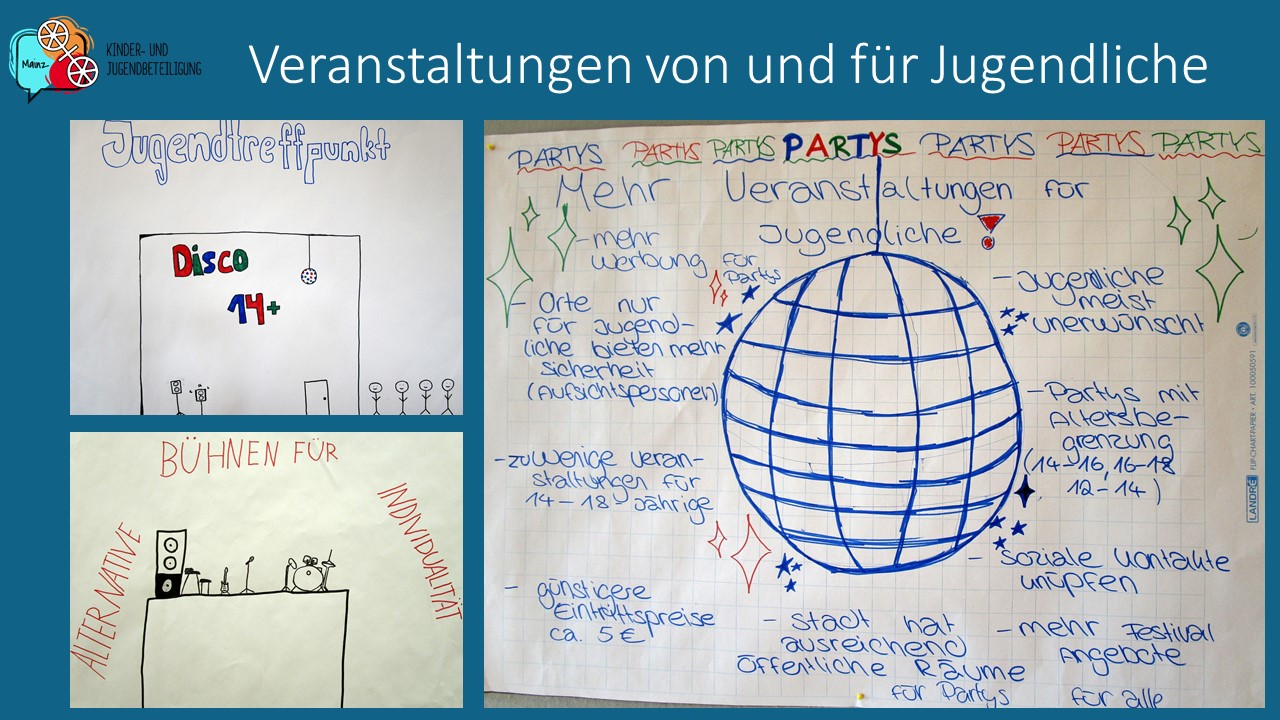 Mainz
KINDER- UND
JUGENDBETEILIGUNG
Veranstaltungen von und für Jugendliche
Jugendtreffpunkt
Disco
14+
BÜHNEN FÜR
ALTERNATIVE
INDIVIDUALITÄT
PARTYS PARTYS PARTYS PARTYS PARTYS PARTYS PARTYS
Mehr Veranstaltungen für
Jugendliche !
- mehr
Werbung für
Partys
- Orte nur
für Jugend-
liche bieten mehr
sicherheit
(Aufsichtspersonen)
- zu wenige Veran-
staltungen für
14-18-Jährige
- günstigere
Eintrittspreise
ca. 5€
- Stadt hat
ausreichend
öffentliche Räume
für Partys
- Jugendliche
meist
unerwünscht
- Partys mit
Altersbe-
grenzung
(14-16, 16-18
12-14)
- soziale Kontakte
knüpfen
- mehr Festival
Angebote
für alle
LANDRÉ FLIP-CHART-PAPIER • ART. 100050591